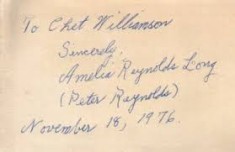 To Chet Williamson
Sincerely,
Amelia Reynolds Long
(Peter Reynolds)
November 18, 1976.